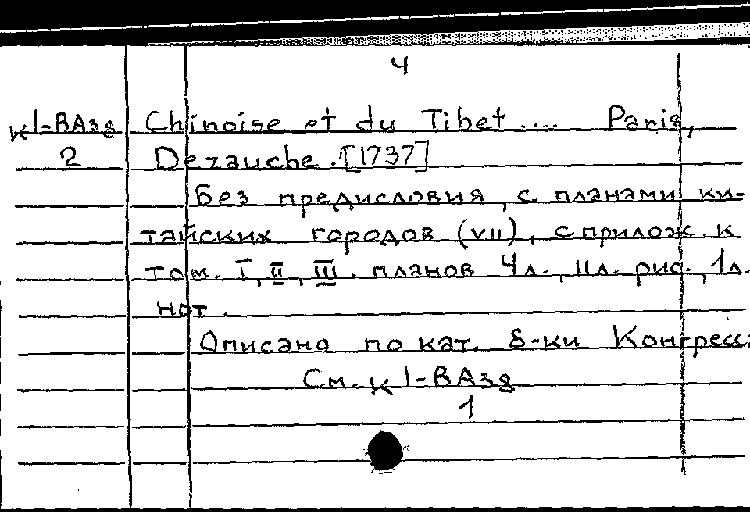 4
к I-ВАзв Chinoise et du Tibet .... Paris,
2 Dezauche. [1737]
Без предисловия, с планами ки-
тайских городов (VII), с прилож. к
том. I, II, III. планов 4л., 11л. рис., 1л.
нот.
Описано по кат. б-ки Конгресса
См. к I-ВАзв
1